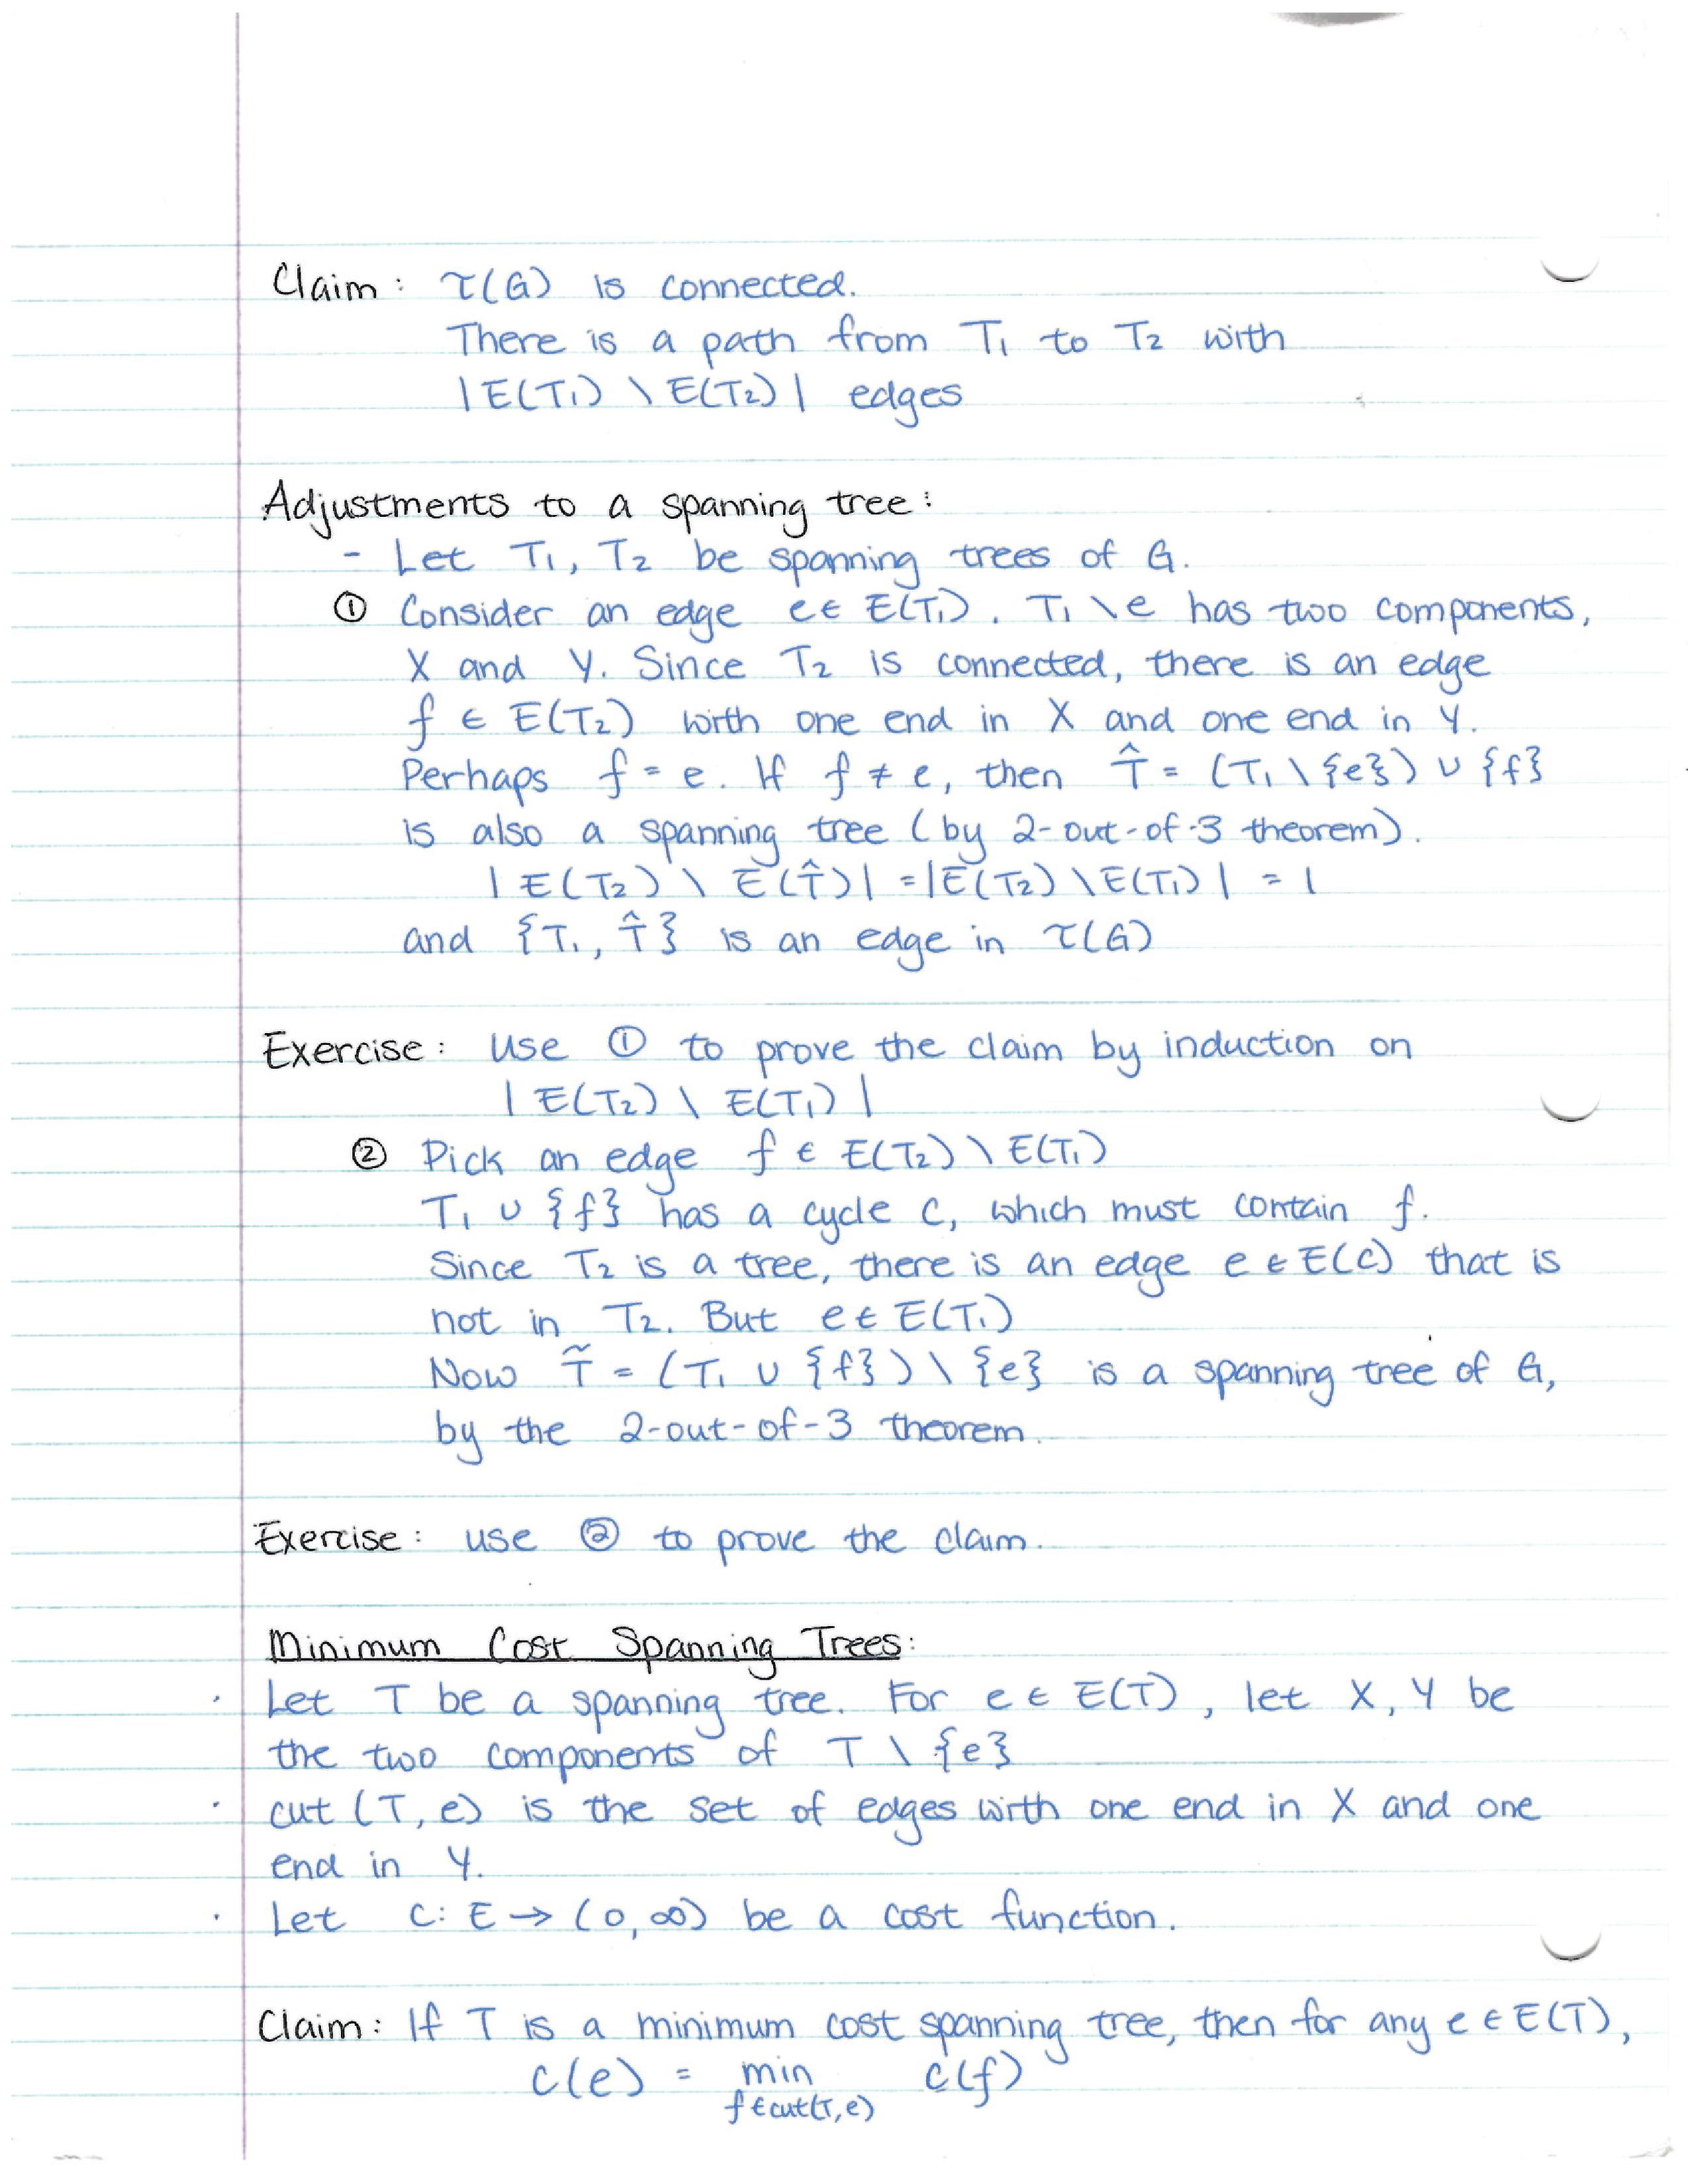 Claim: τ(G) is connected.
There is a path from T₁ to T₂ with
|E(T₁) \ E(T₂)| edges
Adjustments to a spanning tree:
- Let T₁, T₂ be spanning trees of G.
① Consider an edge e ∈ E(T₁). T₁ \ e has two components,
X and Y. Since T₂ is connected, there is an edge
f ∈ E(T₂) with one end in X and one end in Y.
Perhaps f = e. If f ≠ e, then T̂ = (T₁ \ {e}) ∪ {f}
is also a spanning tree (by 2-out-of-3 theorem).
|E(T₂) \ E(T̂)| = |E(T₂) \ E(T₁)| = 1
and {T₁, T̂} is an edge in τ(G)
Exercise: use ① to prove the claim by induction on
|E(T₂) \ E(T₁)|
② Pick an edge f ∈ E(T₂) \ E(T₁)
T₁ ∪ {f} has a cycle C, which must contain f.
Since T₂ is a tree, there is an edge e ∈ E(C) that is
not in T₂. But e ∈ E(T₁)
Now T̃ = (T₁ ∪ {f}) \ {e} is a spanning tree of G,
by the 2-out-of-3 theorem.
Exercise: use ② to prove the claim.
Minimum Cost Spanning Trees:
· Let T be a spanning tree. For e ∈ E(T), let X, Y be
the two components of T \ {e}
· cut (T, e) is the set of edges with one end in X and one
end in Y.
· Let c: E → (0, ∞) be a cost function.
Claim: If T is a minimum cost spanning tree, then for any e ∈ E(T),
c(e) = min c(f)
f ∈ cut(T, e)